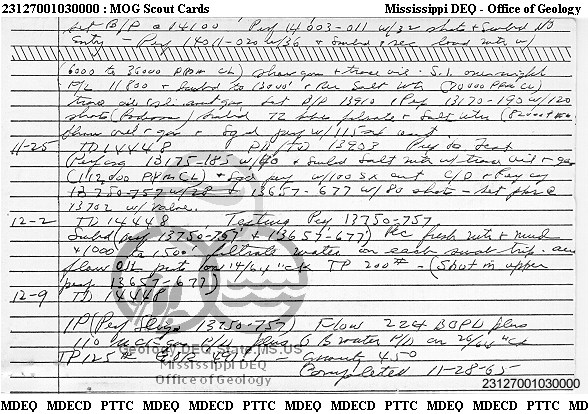 23127001030000 : MOG Scout Cards Mississippi DEQ - Office of Geology
Set B/P @ 14100' Perf 14003-011 w/32 shots & Swbd No
Entry - Perf 14011-020 w/36 & Swbd & rec load wtr w/
(6000 to 36000 PPM CL) show gas & trace oil. S.I. overnight
F/L 11800 & Swbd to 13000' & Rec Salt Wtr (70000 PPM CL)
trace oil, sli. amt gas. Set B/P 13910 & Perf 13170-190 w/120
shots Swbd 72 bbls filtrate & Salt Wtr
oil & gas & Sqzd perf w/115 sx cmt
11-25 TD 14448 PB (TD) 13903 Prep to Test
Perf 13175-185 w/40 & Swbd Salt Wtr w/trace oil & gas
(112,000 PPM CL) & Sqzd perf w/100 sx cmt C/O & Perf
13750-757 w/28 & 13657-677 w/80 shots - Set pkr @
13702 w/valve.
12-2 TD 14448 Testing Perf 13750-757
Swbd (perf 13750-757 & 13657-677) Rec fresh wtr & mud
& 1000 to 1500' filtrate water on each swab trip.
flow Oil 14/64" ck TP 200# - (Shut in upper
perf 13657-677)
12-9 TD 14448
IP (Perf 13750-757) Flow 224 BOPD plus
110 MCF gas P/D plus 6 B water P/D on 26/64" ck
TP 125# GOR 491/1 - Gravity 45.0
Completed 11-28-65
Geology.DEQ.State.MS.US
Mississippi DEQ
Office of Geology
23127001030000
MDEQ MDECD PTTC MDEQ MDECD PTTC MDEQ MDECD PTTC MDEQ MDECD PTTC MDEQ